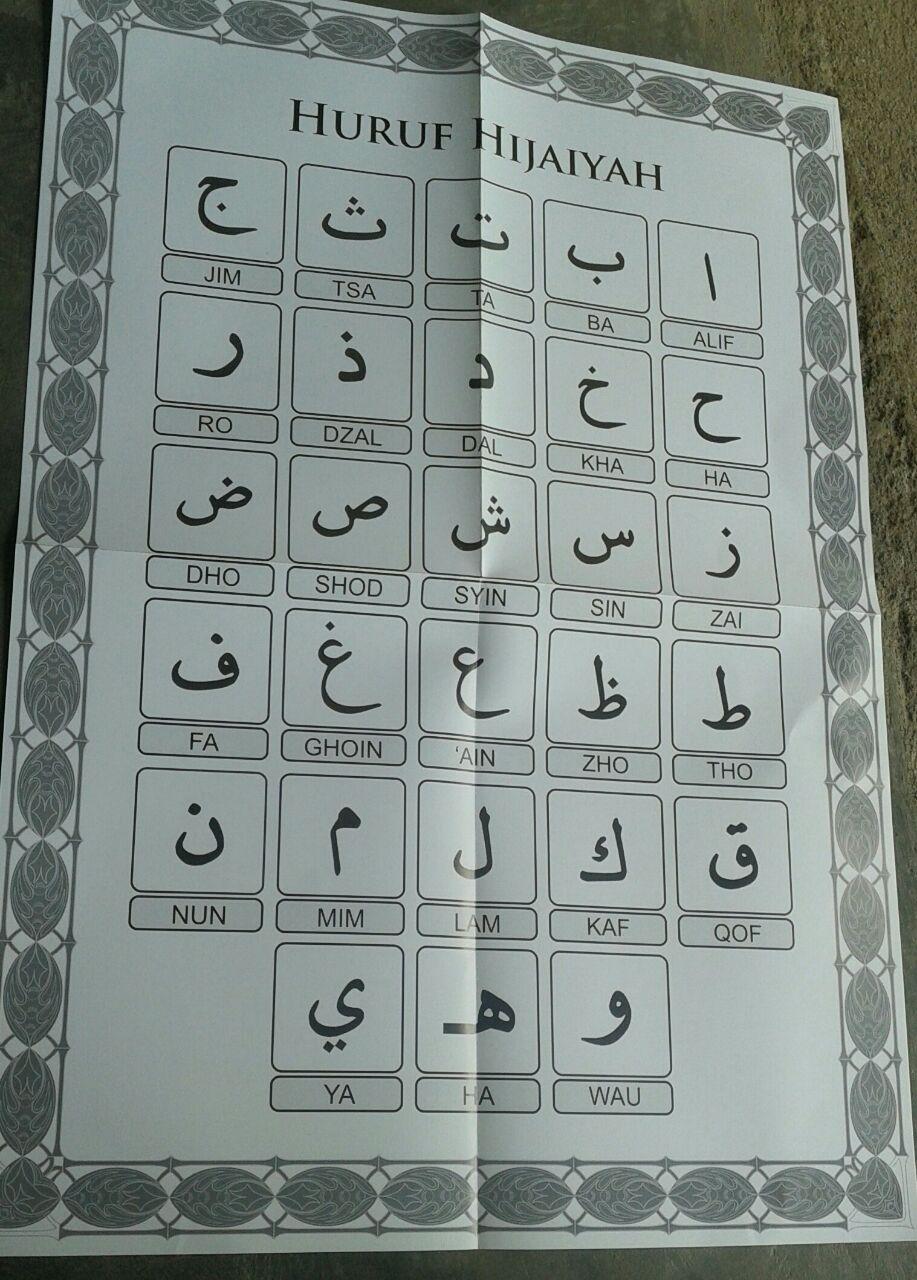 HURUF HIJAIYAH
ا ب ت ث ج
ALIF BA TA TSA JIM
ح خ د ذ ر
HA KHA DAL DZAL RO
ز س ش ص ض
ZAI SIN SYIN SHOD DHO
ط ظ ع غ ف
THO ZHO ‘AIN GHOIN FA
ق ك ل م ن
QOF KAF LAM MIM NUN
و هـ ي
WAU HA YA